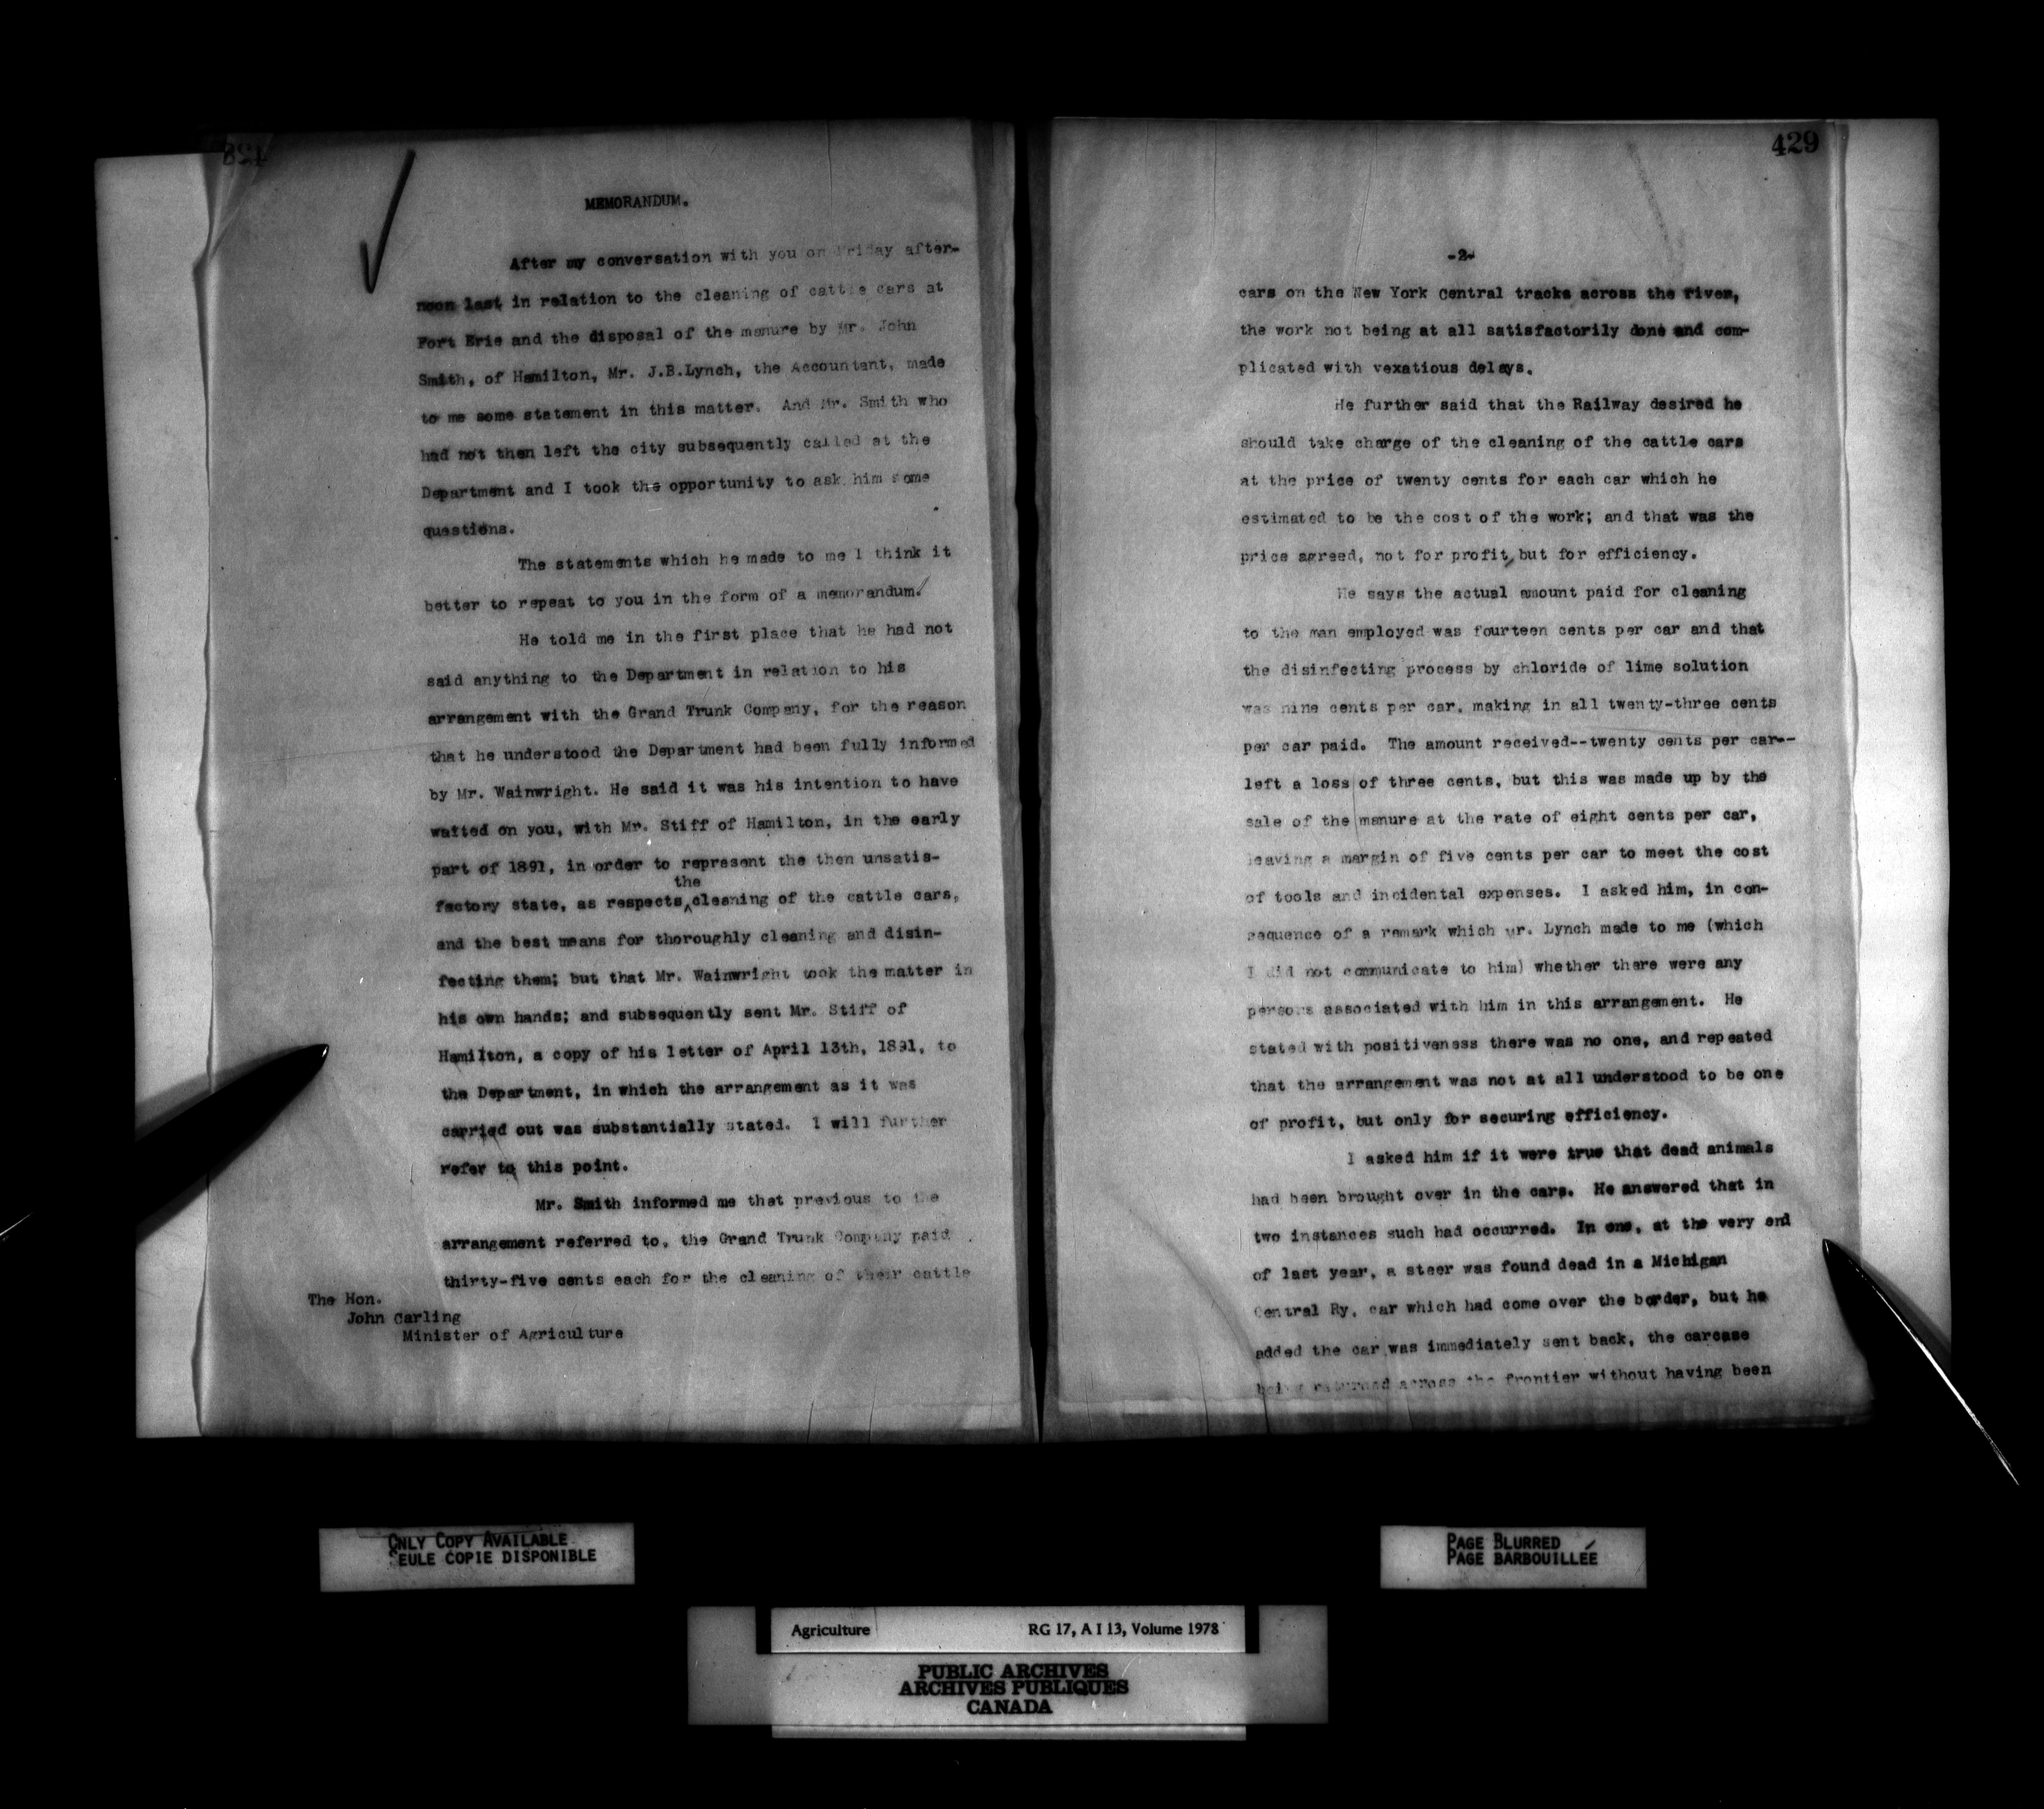 428
MEMORANDUM.
After my conversation with you on Friday after-
noon last in relation to the cleaning of cattle cars at
Fort Erie and the disposal of the manure by Mr. John
Smith, of Hamilton, Mr. J.B.Lynch, the Accountant, made
to me some statement in this matter. And Mr. Smith who
had not then left the city subsequently called at the
Department and I took the opportunity to ask him some
questions.
The statements which he made to me I think it
better to repeat to you in the form of a memorandum.
He told me in the first place that he had not
said anything to the Department in relation to his
arrangement with the Grand Trunk Company, for the reason
that he understood the Department had been fully informed
by Mr. Wainwright. He said it was his intention to have
waited on you, with Mr. Stiff of Hamilton, in the early
part of 1891, in order to represent the then unsatis-
the
factory state, as respects ^ cleaning of the cattle cars,
and the best means for thoroughly cleaning and disin-
fecting them; but that Mr. Wainwright took the matter in
his own hands; and subsequently sent Mr. Stiff of
Hamilton, a copy of his letter of April 13th, 1891, to
the Department, in which the arrangement as it was
carried out was substantially stated. I will further
refer to this point.
Mr. Smith informed me that previous to the
arrangement referred to, the Grand Trunk Company paid
thirty-five cents each for the cleaning of their cattle
The Hon.
John Carling
Minister of Agriculture
429
-2-
cars on the New York Central tracks across the river,
the work not being at all satisfactorily done and com-
plicated with vexatious delays.
He further said that the Railway desired he
should take charge of the cleaning of the cattle cars
at the price of twenty cents for each car which he
estimated to be the cost of the work; and that was the
price agreed, not for profit, but for efficiency.
He says the actual amount paid for cleaning
to the man employed was fourteen cents per car and that
the disinfecting process by chloride of lime solution
was nine cents per car, making in all twenty-three cents
per car paid. The amount received--twenty cents per car--
left a loss of three cents, but this was made up by the
sale of the manure at the rate of eight cents per car,
leaving a margin of five cents per car to meet the cost
of tools and incidental expenses. I asked him, in con-
sequence of a remark which Mr. Lynch made to me (which
I did not communicate to him) whether there were any
persons associated with him in this arrangement. He
stated with positiveness there was no one, and repeated
that the arrangement was not at all understood to be one
of profit, but only for securing efficiency.
I asked him if it were true that dead animals
had been brought over in the cars. He answered that in
two instances such had occurred. In one, at the very end
of last year, a steer was found dead in a Michigan
Central Ry. car which had come over the border, but he
added the car was immediately sent back, the carcase
being returned across the frontier without having been
ONLY COPY AVAILABLE
SEULE COPIE DISPONIBLE
PAGE BLURRED
PAGE BARBOUILLÉE
Agriculture RG 17, A I 13, Volume 1978
PUBLIC ARCHIVES
ARCHIVES PUBLIQUES
CANADA